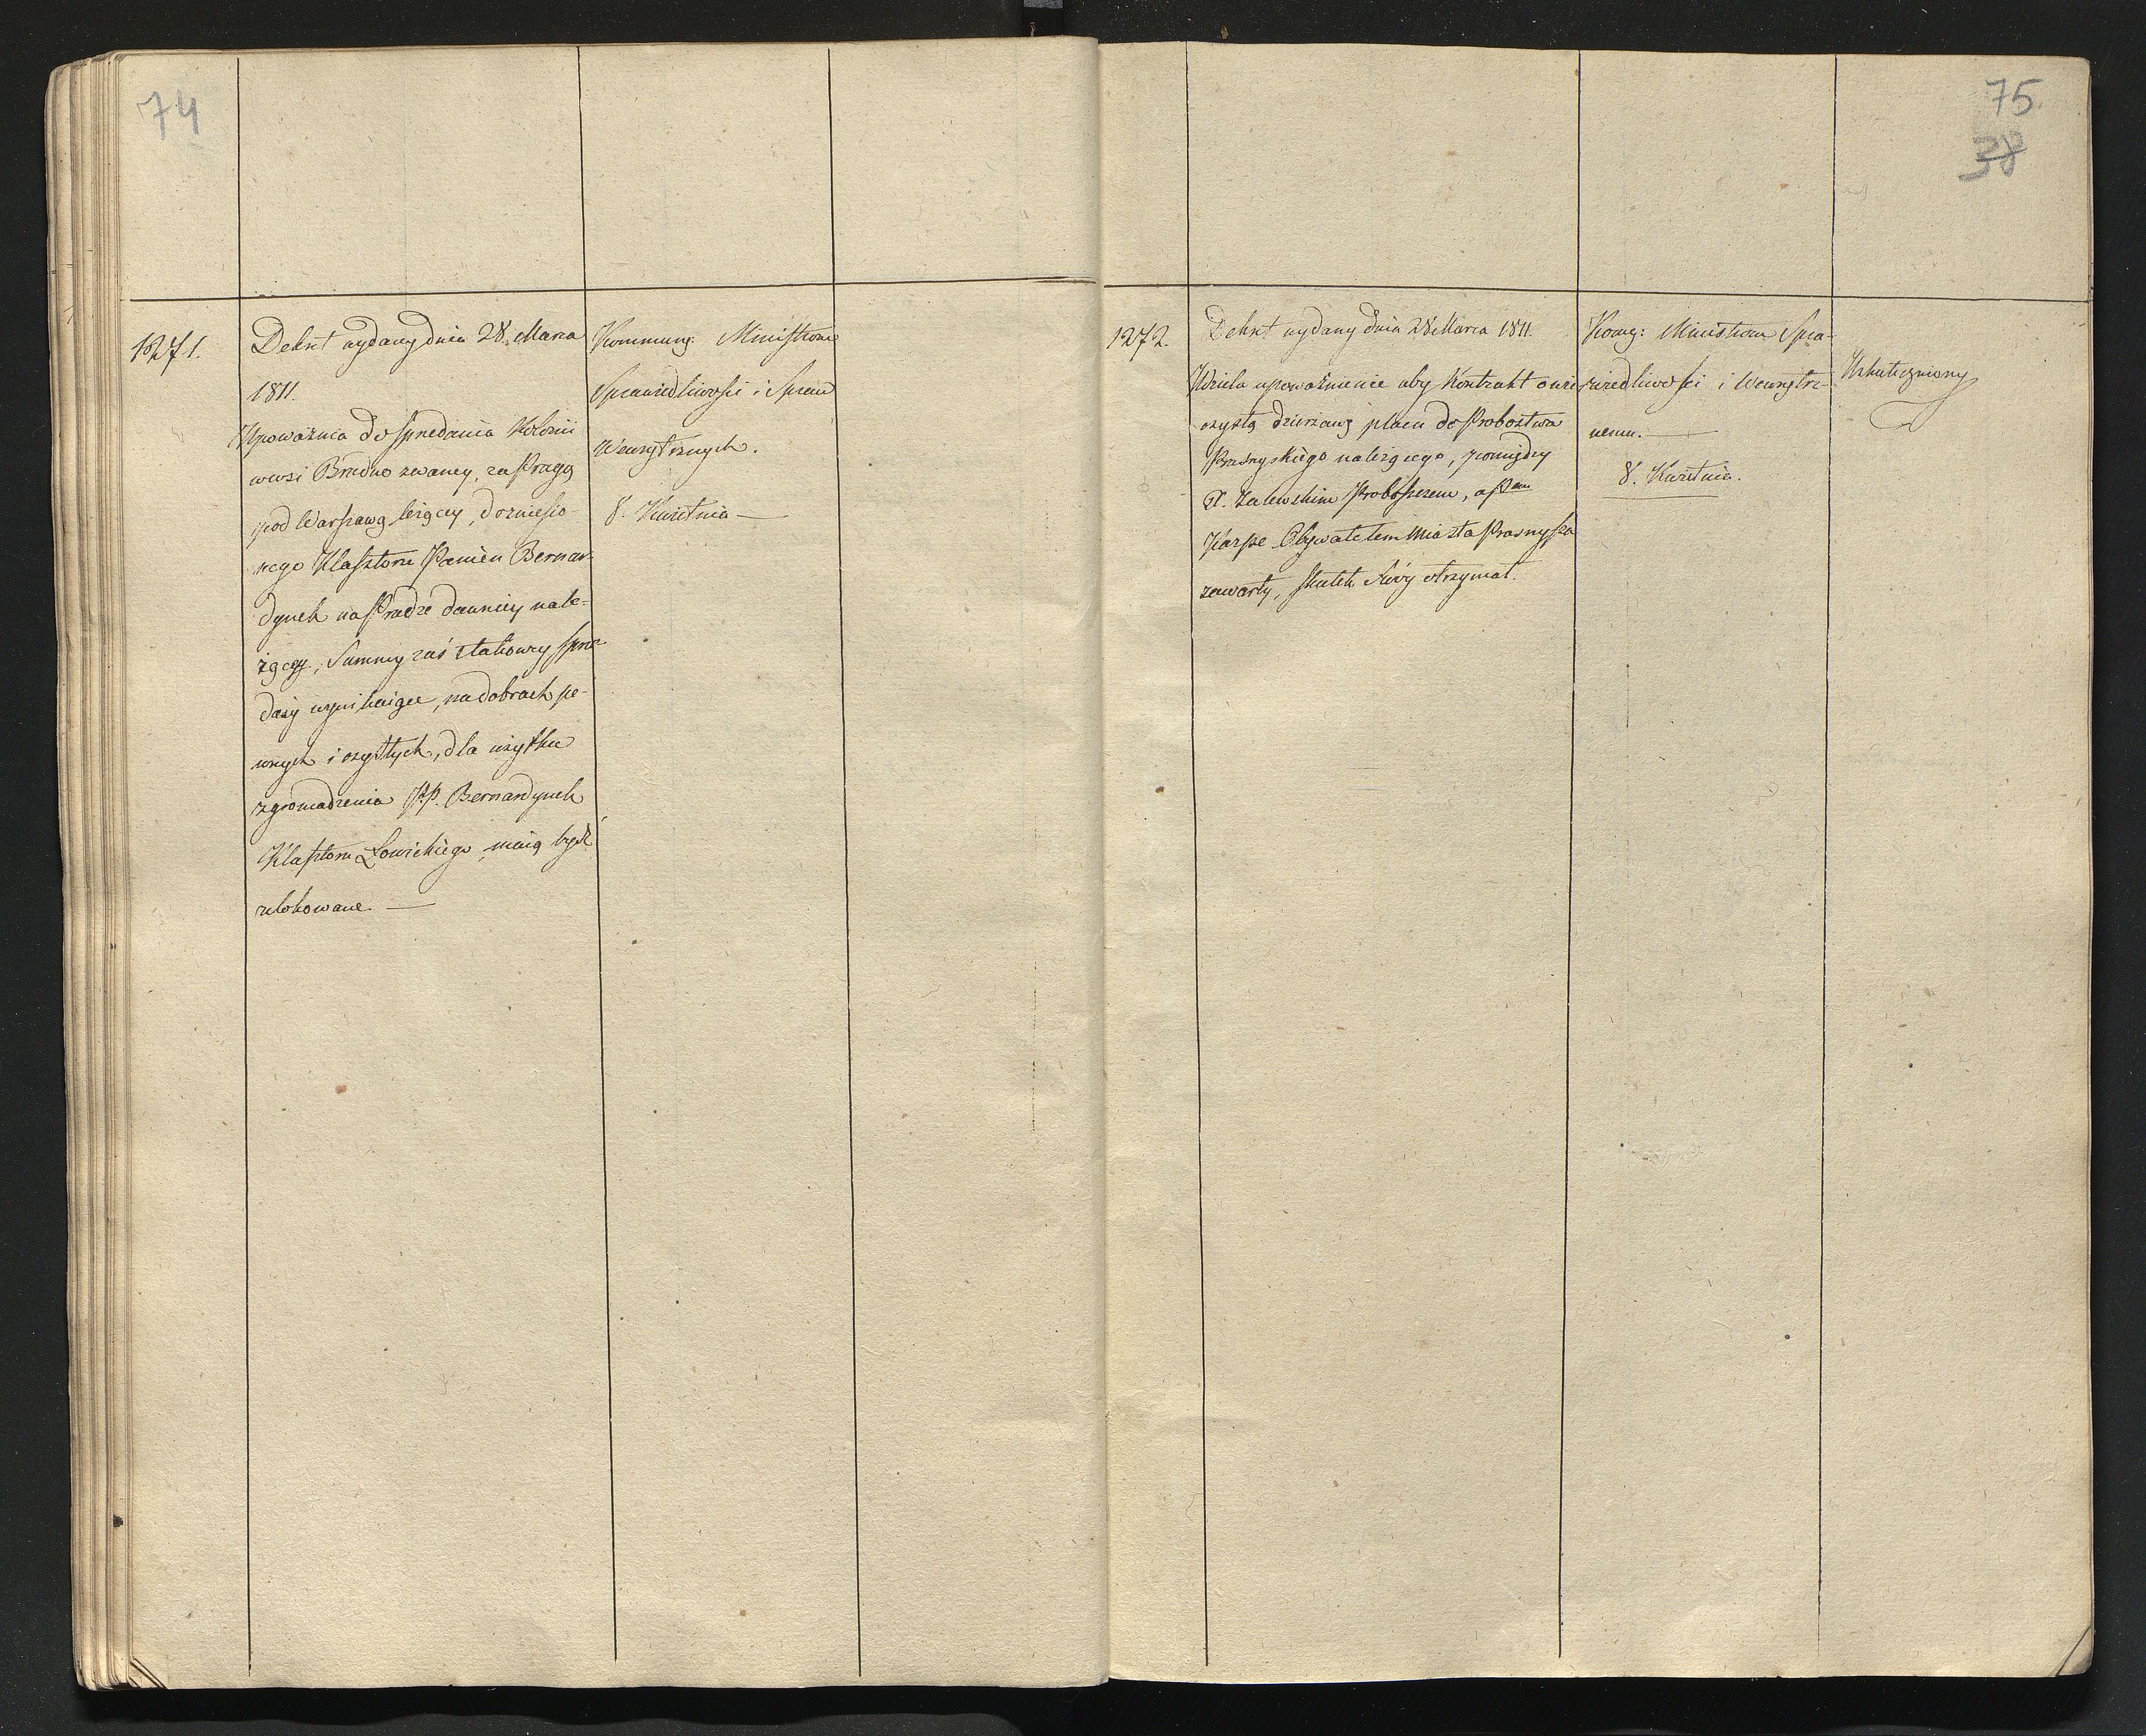 74
1271.
Dekret wydany dnia 28. Marca
1811.
Upoważnia do sprzedania Kolonii
wwsi Brudno zwaney, za Pragą
pod Warszawą leżącey, do zniesio-
nego Klasztoru Panien Bernar-
dynek na Pradze dawniey nale-
żącey, Summy zaś z takowey sprze-
daży wynikaiące, na dobrach pe-
wnych i czystych, dla użytku
zgromadzenia PP. Bernardynek
Klasztoru Łowickiego maią bydź
ulokowane. —
Kommung: Ministrom
Sprawiedliwości i Spraw
Wewnętrznych.
8. Kwietnia —
75
38
1272.
Dekret wydany dnia 28 Marca 1811.
Udziela upoważnienie aby Kontrakt o wie-
czystą dzierżawę placu do Probostwa
Prasnyskiego należącego, pomiędzy
X. Zalewskim Proboszczem, a Panem
Karpe Obywatelem Miasta Prasnysza
zawarty, skutek swóy otrzymał.
Komg: Ministrom Spra-
wiedliwości i Wewnętrz-
nemu. —
8. Kwietnia.
Uskuteczniony